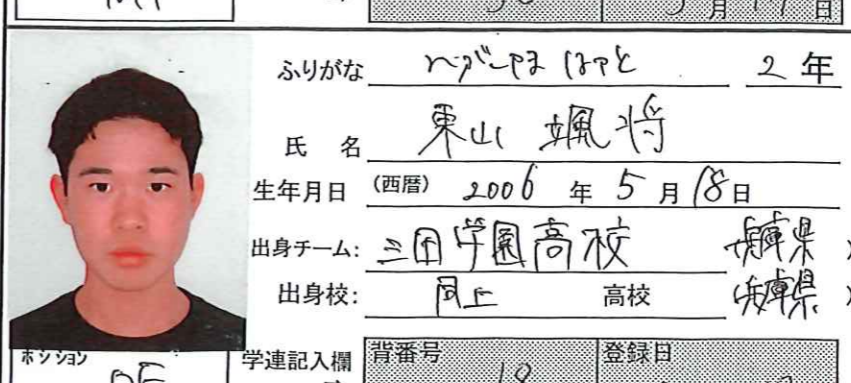 月 日
ふりがな はやと 2年
氏 名 東山 颯将
生年月日 (西暦) 2006 年 5 月 18日
出身チーム: 三田学園高校 (兵庫県)
出身校: 同上 高校 (兵庫県)
ポジション 学連記入欄 背番号 登録日
DF 18